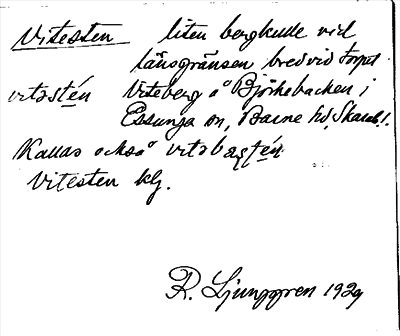 Vitesten liten bergkulle vid
länsgränsen bredvid torpet
vitəstén Viteberg o Björkebacken i
Essunga sn, Barne hd, Skarab.l.
Kallas också vitəbærgtén
Vitesten klg.
R. Ljunggren 1929